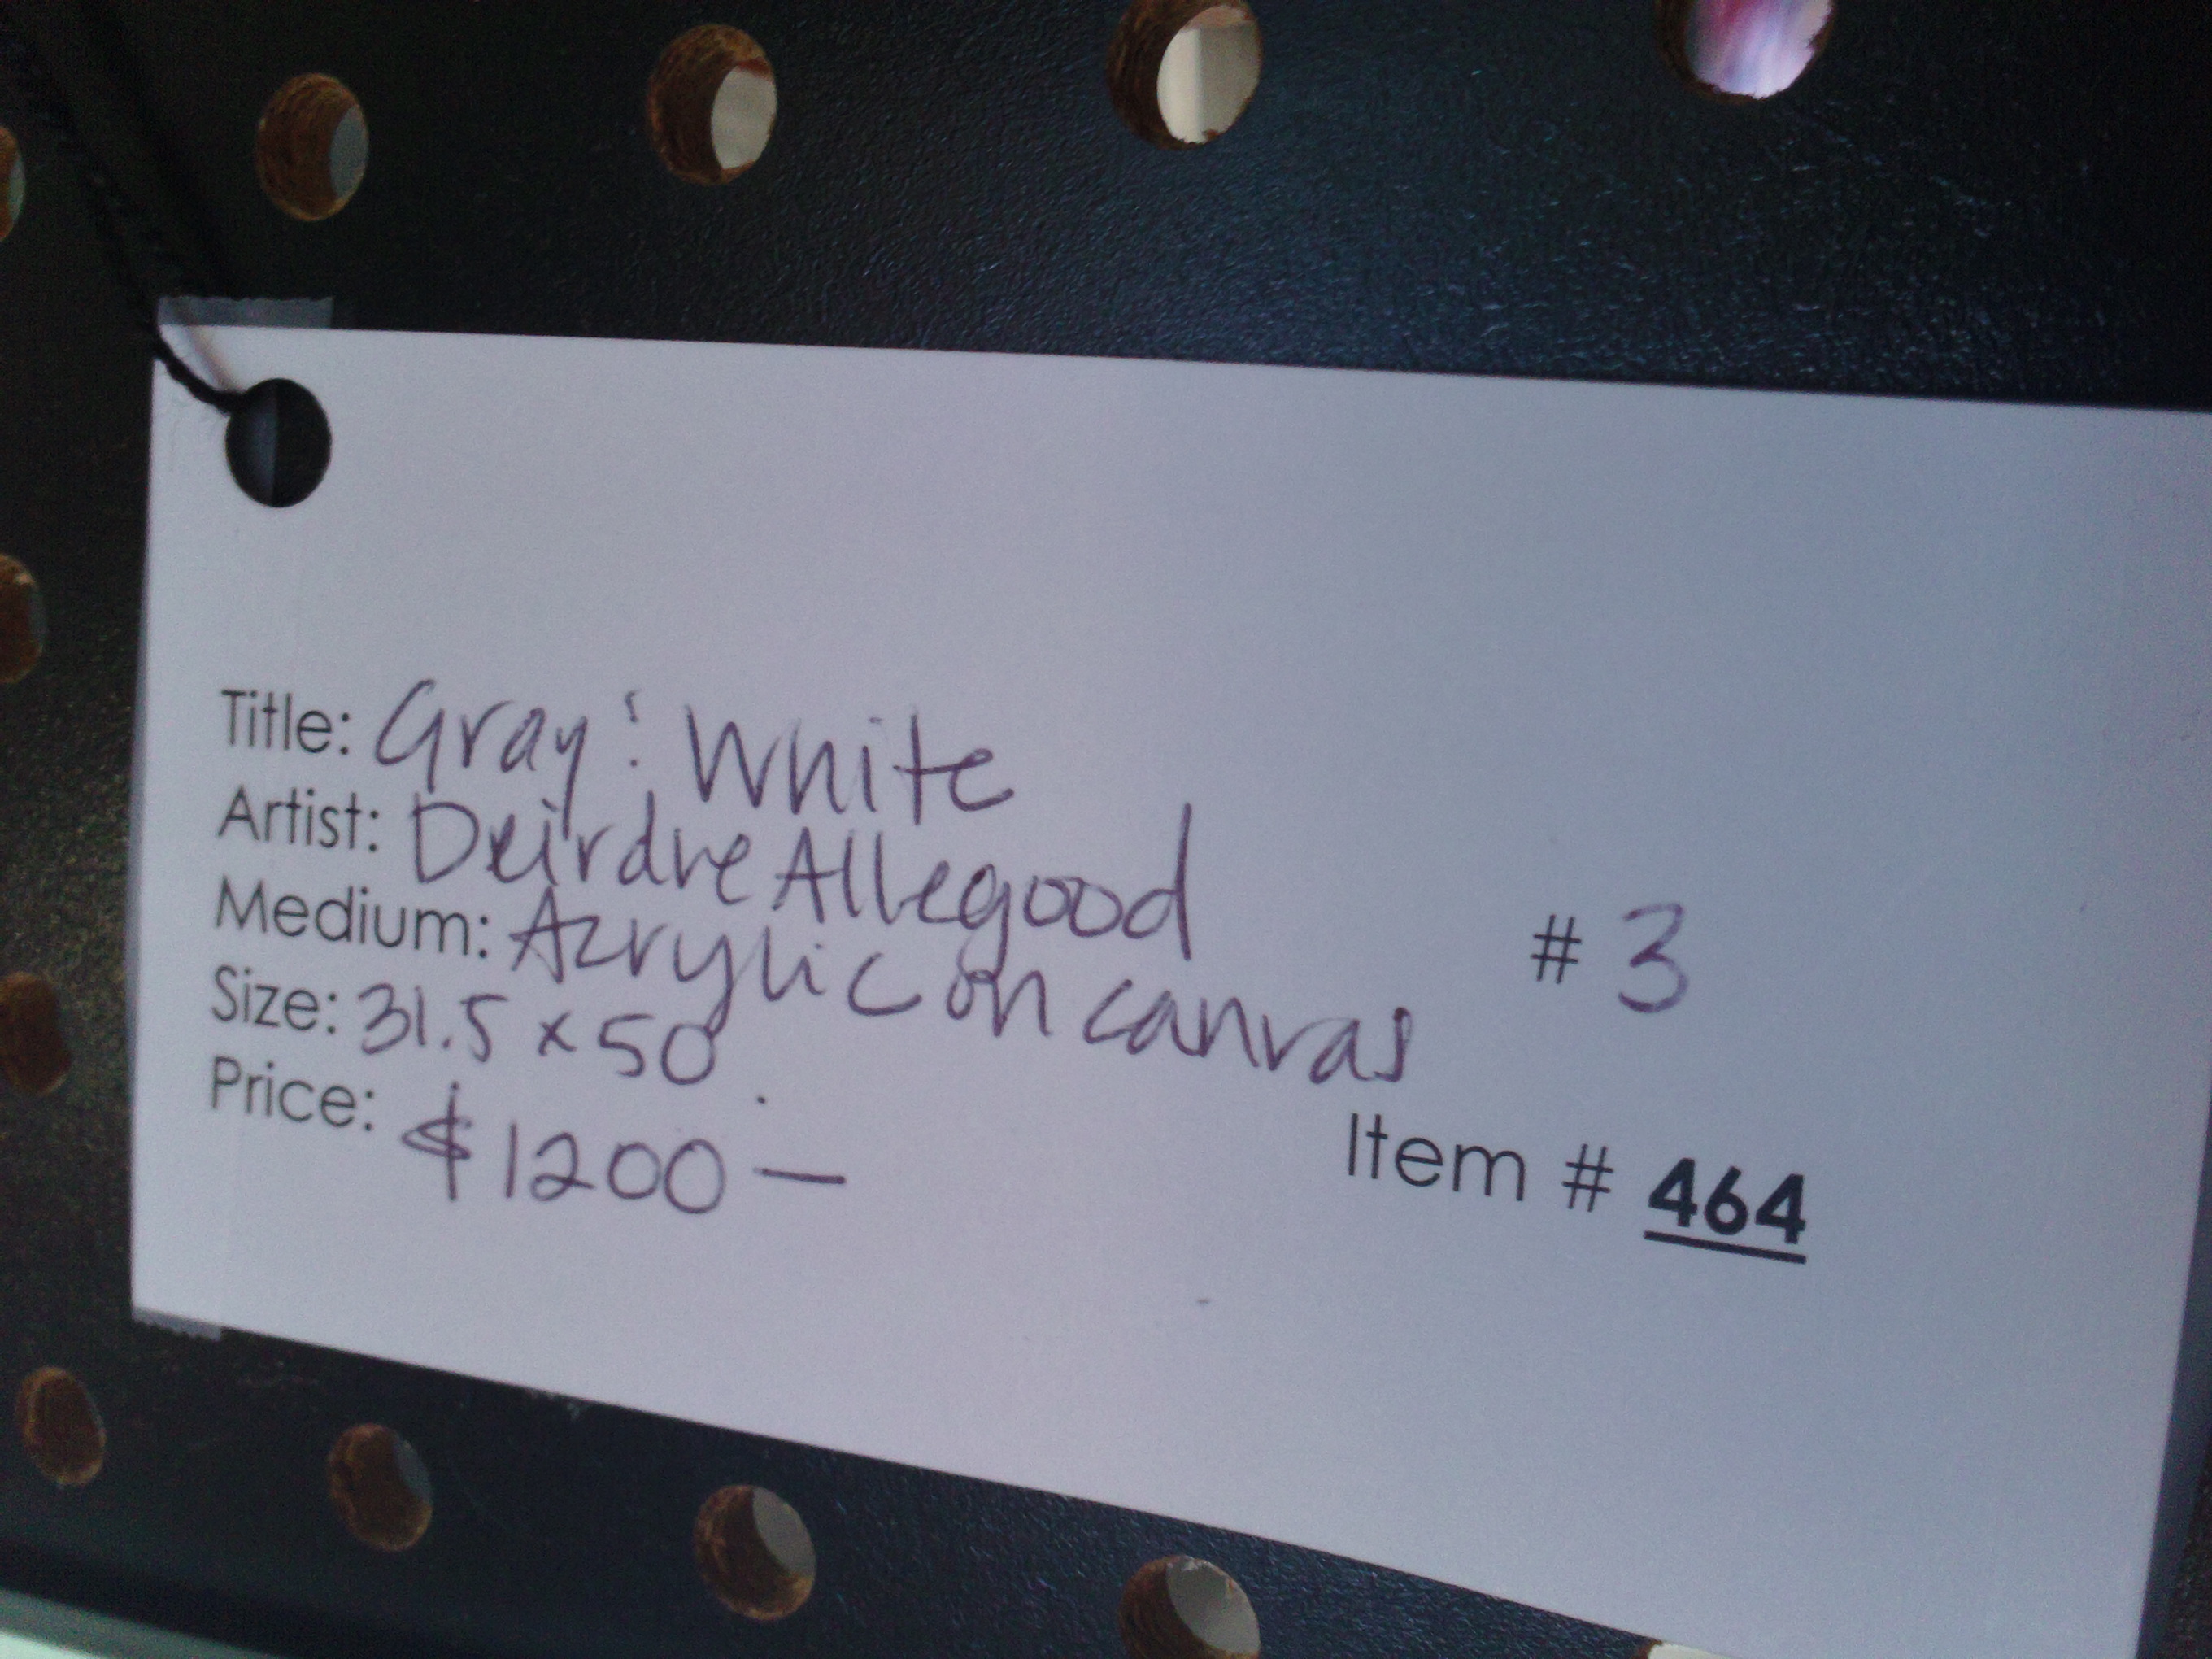 Title: Gray: White
Artist: Deirdre Allegood
Medium: Acrylic on canvas
# 3
Size: 31.5 x 50
Price: $1200 —
Item # 464